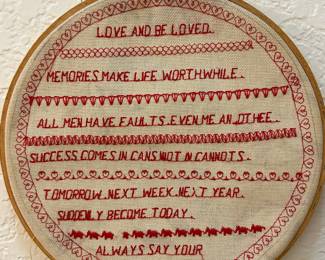 LOVE AND BE LOVED.
MEMORIES MAKE LIFE WORTHWHILE.
ALL MEN HAVE FAULTS. EVEN ME AN, DTHEE.
SUCCESS COMES IN CANS NOT IN CANNOTS.
TOMORROW. NEXT WEEK. NEXT YEAR.
SUDDENLY BECOME TODAY.
ALWAYS SAY YOUR